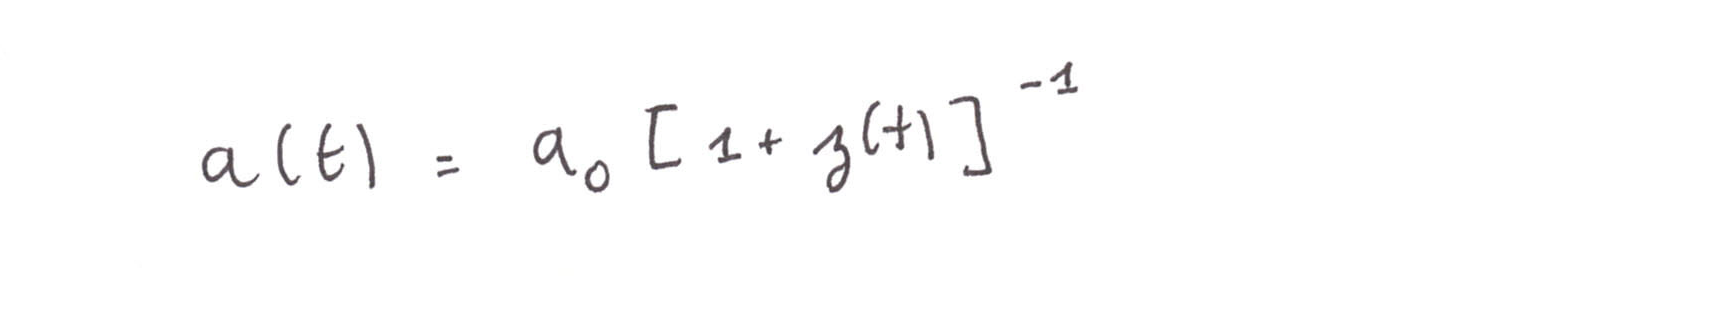 a(t) = a₀ [1 + z(t)]⁻¹